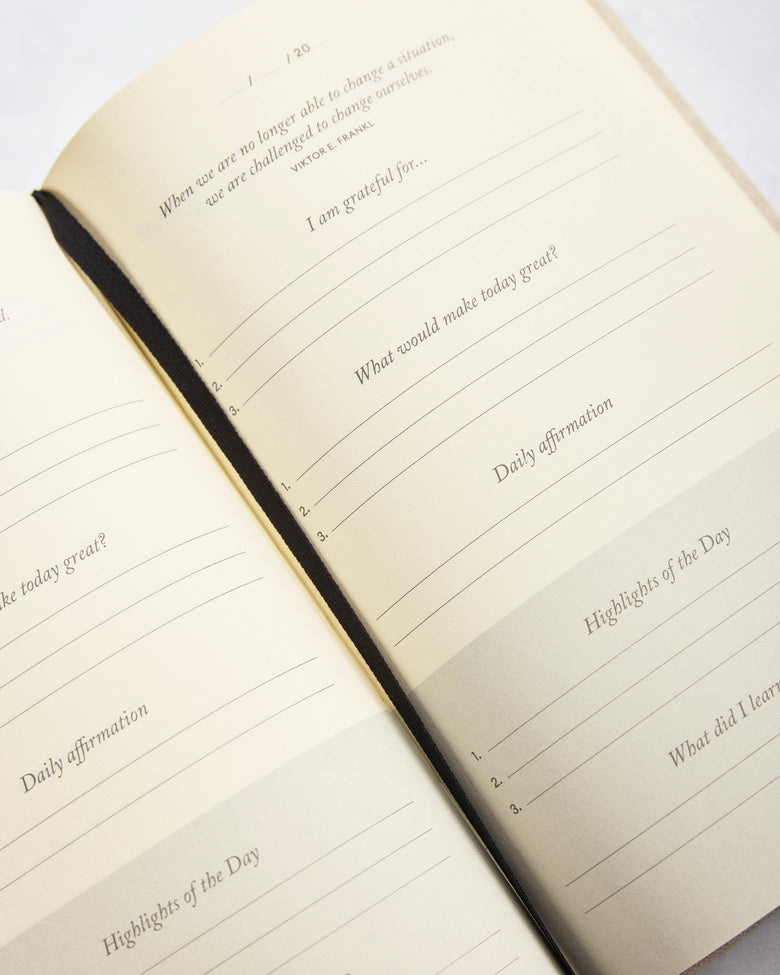 d.
ke today great?
Daily affirmation
Highlights of the Day
/ / 20
When we are no longer able to change a situation,
we are challenged to change ourselves.
VIKTOR E. FRANKL
I am grateful for...
1.
2.
3.
What would make today great?
1.
2.
3.
Daily affirmation
Highlights of the Day
1.
2.
3.
What did I learn